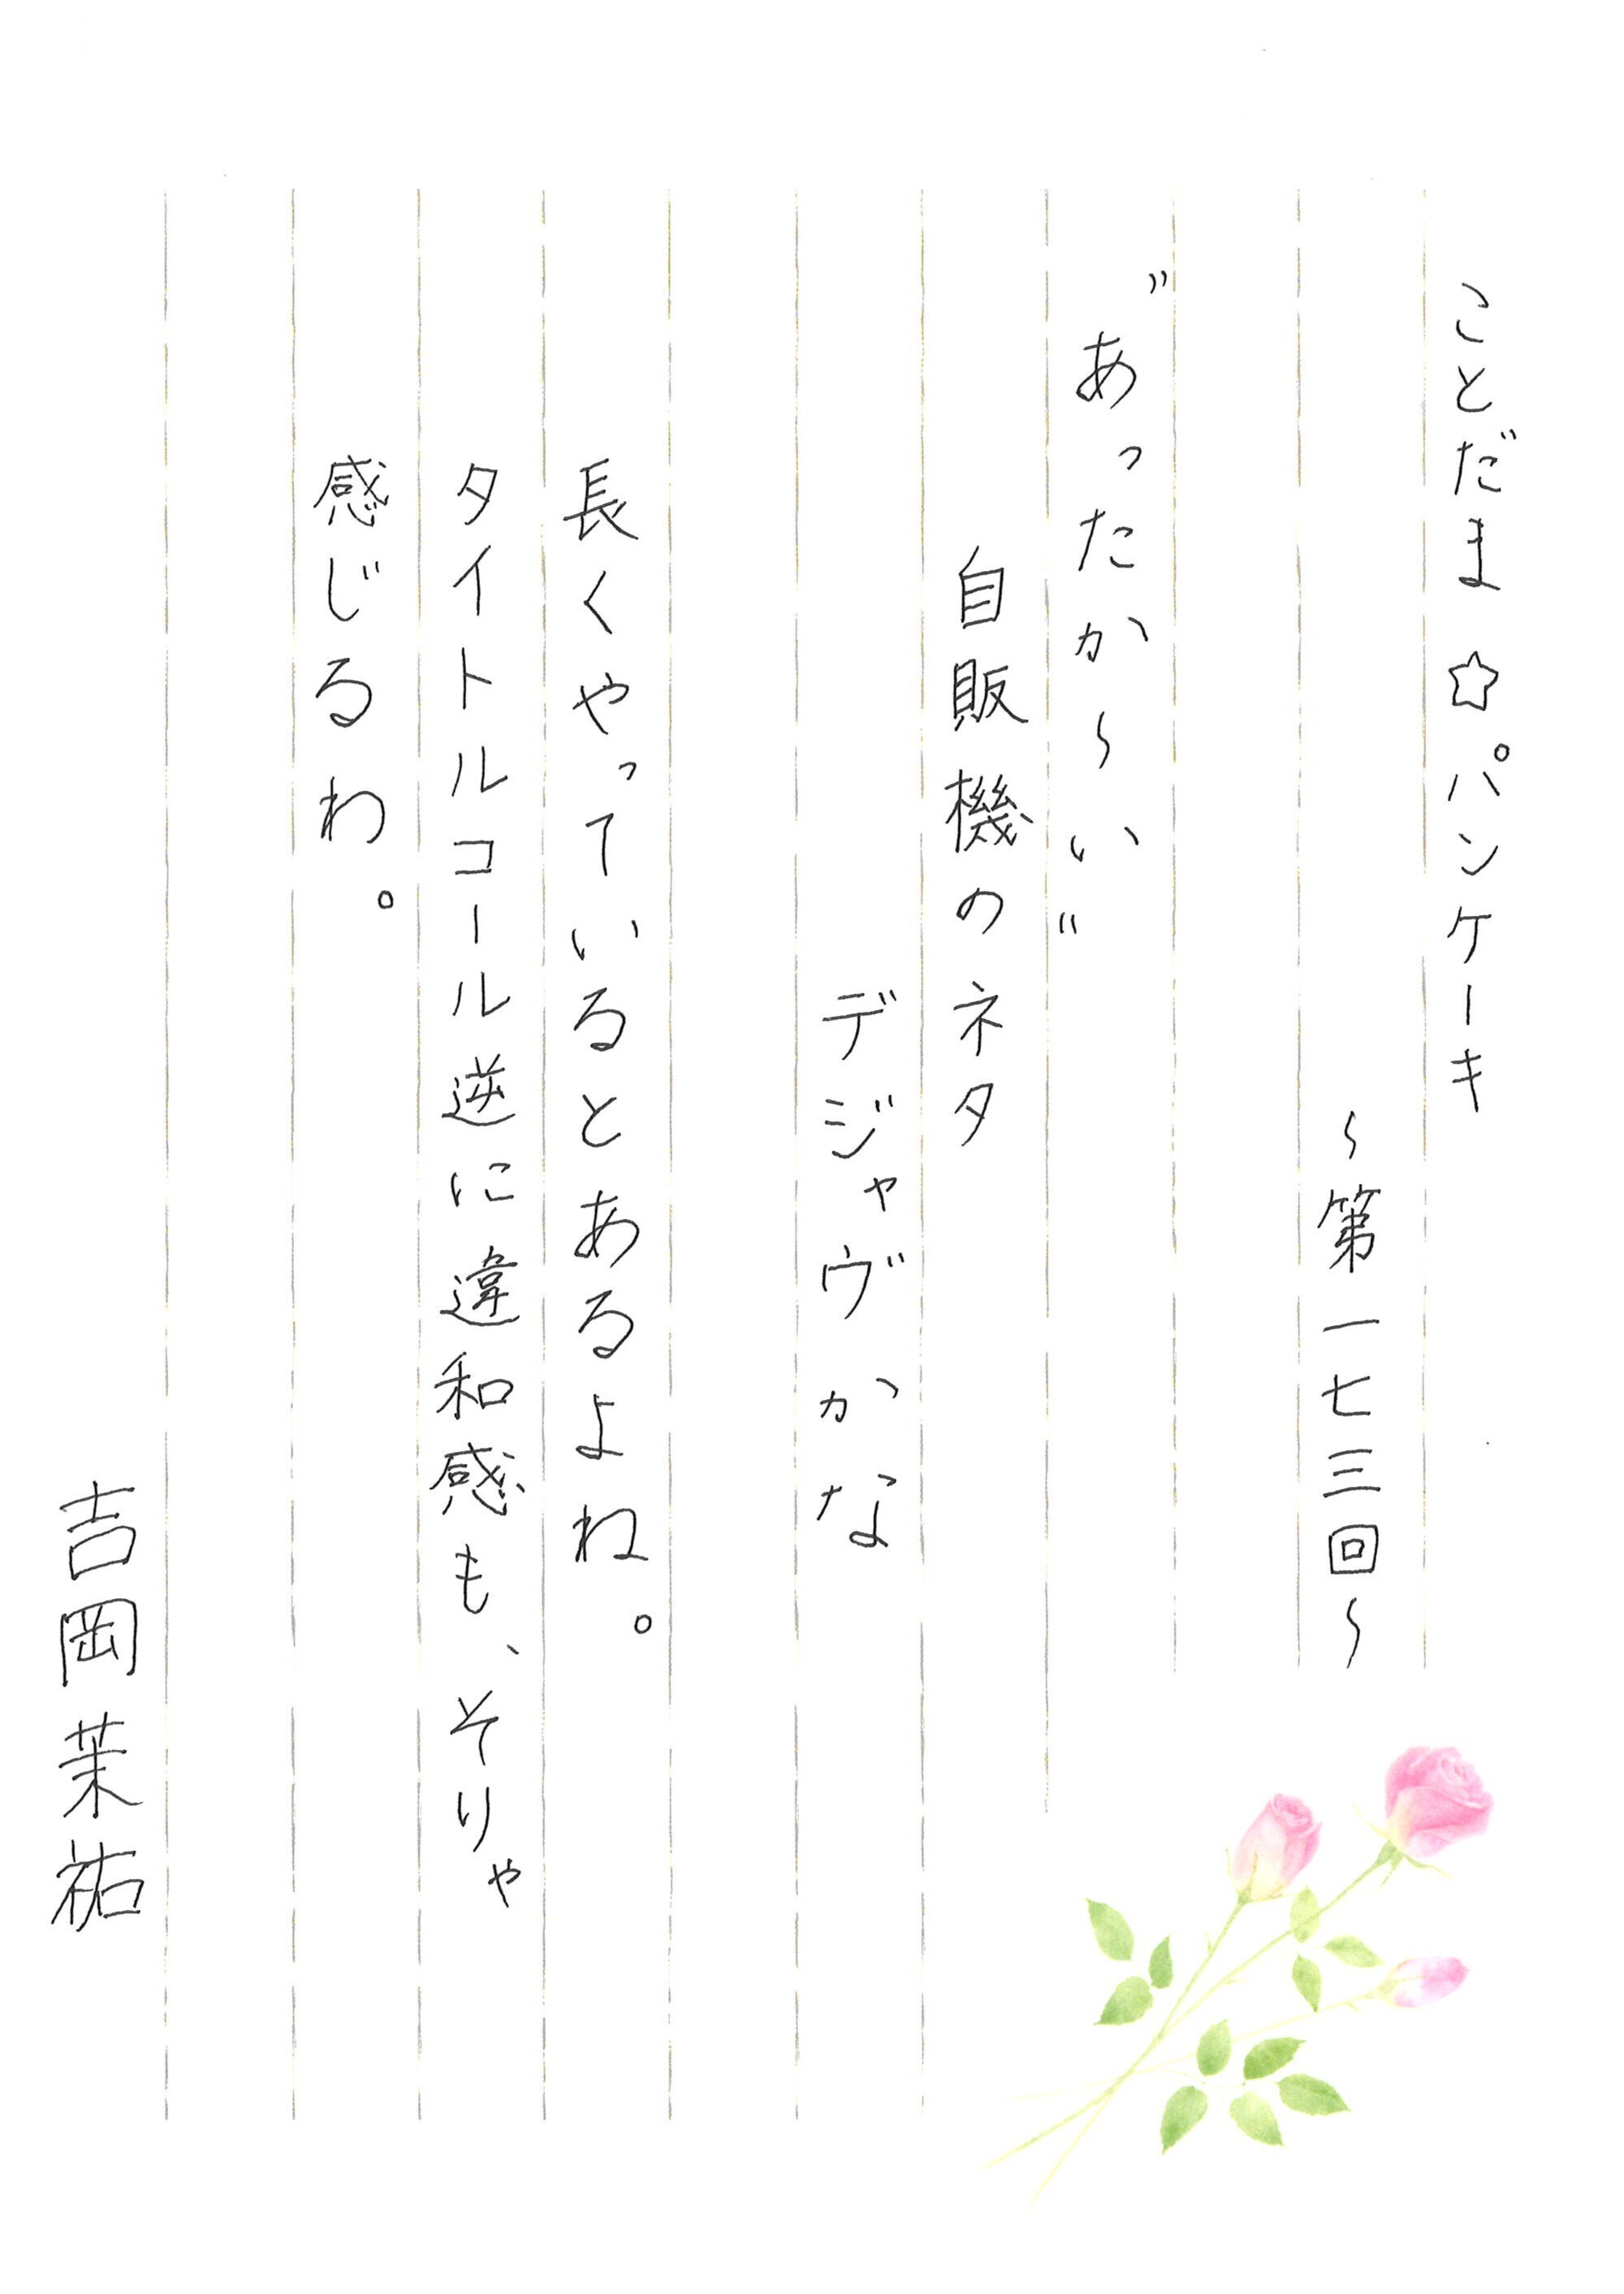 ことだま☆パンケーキ
～第一七三回～
〝あったか～い〟
自販機のネタ
デジャヴかな
長くやっているとあるよね。
タイトルコール逆に違和感も、そりゃ
感じるわ。
吉岡茉祐